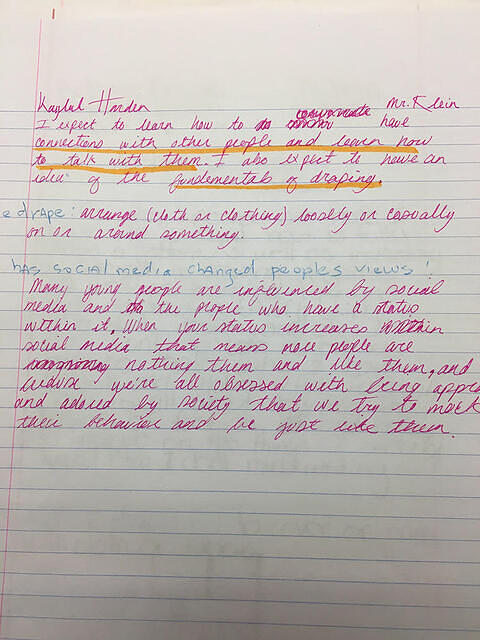 Harden Mr. Klein
I expect to learn how to communicate have
connections with other people and learn how
to talk with them. I also expect to have an
idea of the fundamentals of draping.
e drape: arrange (cloth or clothing) loosely or casually
on or around something.
has social media changed peoples views!
Many young people are influenced by social
media and the people who have a status
within it. When your status increases within
social media that means more people are
nothing them and like them, and
we're all obsessed with being appre
and adored by society that we try to mock
their behavior and be just like them.